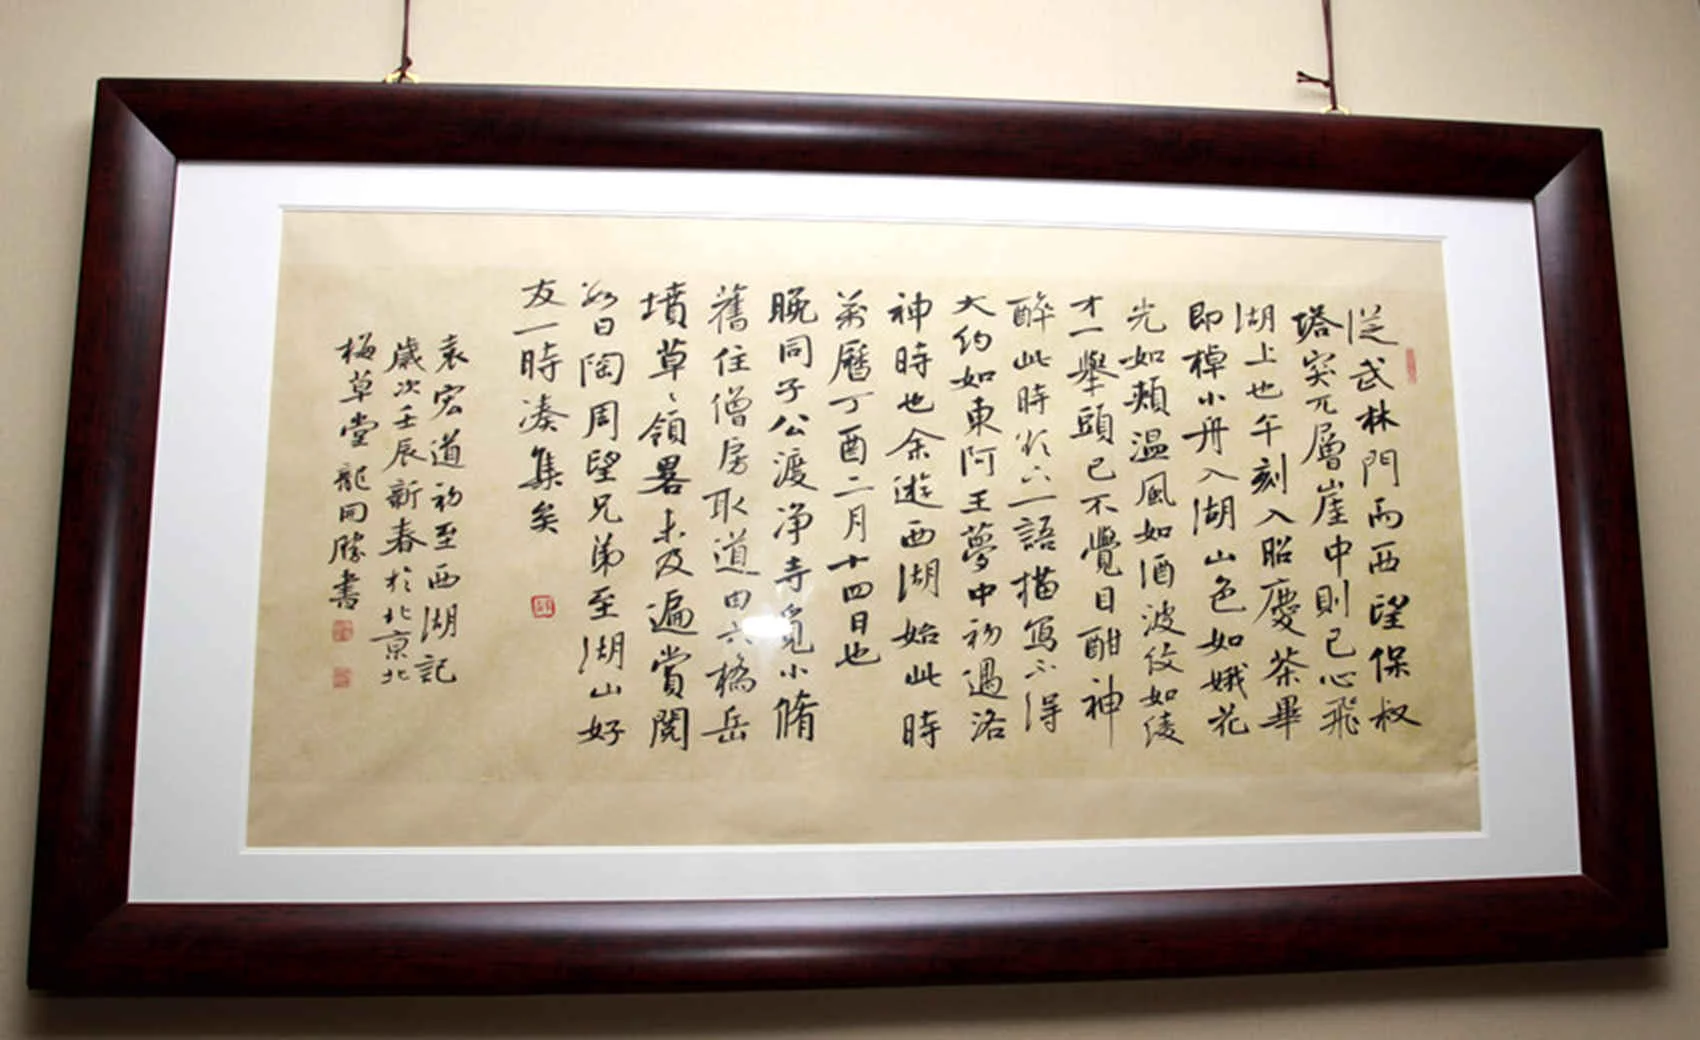 從武林門而西望保叔
塔突兀層崖中則已心飛
湖上也午刻入昭慶茶畢
即棹小舟入湖山色如娥花
光如頰溫風如酒波紋如綾
才一舉頭已不覺目酣神
醉此時欲下一語描寫不得
大約如東阿王夢中初遇洛
神時也余遊西湖始此時
萬曆丁酉二月十四日也
晚同子公渡净寺覓小脩
舊住僧房取道由六橋岳
墳草々領畧未及遍賞閱
數日陶周望兄弟至湖山好
友一時湊集矣
袁宏道初至西湖記
歲次壬辰新春於北京北
梅草堂龍開勝書